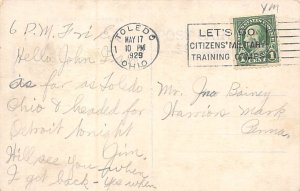 YM
6 P.M. Fri.
TOLEDO
MAY 17
10 PM
1929
OHIO
1
LET'S GO
CITIZENS' MILITARY
TRAINING CAMP
1
Hello John
as far as Toledo
Ohio & headed for
Detroit tonight
Jim.
Will see you when
I get back - yes when
Mr. Jno Bainey
Warriors Mark
Penna.